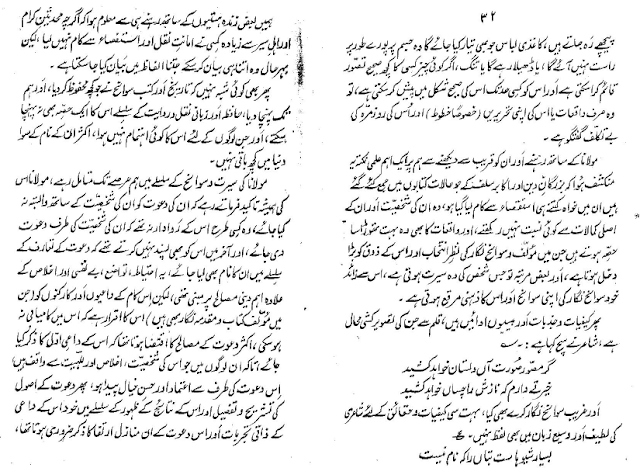 ۳۲
پیچھے رہ جاتے ہیں، کاغذی لباس جو بھی تیار کیا جائے گا وہ جسم پر پورے طور پر
راست نہیں آئے گا، یا ڈھیلا رہے گا یا تنگ، اگر کوئی چیز کسی کا کچھ صحیح تصور
قائم کرا سکتی ہے اور اس کو کسی حد تک اس کی صحیح شکل میں پیش کر سکتی ہے، تو
وہ صرف واقعات یا اس کی اپنی تحریریں (خصوصاً خطوط) اور اس کی روزمرہ کی
بے تکلف گفتگو ہے۔
مولانا کے ساتھ رہنے اور ان کو قریب سے دیکھنے سے ہم پر ایک اہم علمی نکتہ یہ
منکشف ہوا کہ بزرگان دین اور اکابر سلف کے جو حالات کتابوں میں جمع کئے گئے
ہیں ان میں خواہ کتنے ہی استقصاء سے کام لیا گیا ہو، وہ ان کی شخصیت اور ان کے
اصلی کمالات سے کوئی نسبت نہیں رکھتے، اور واقعات کا بھی وہ بہت تھوڑا سا
حصہ ہوتے ہیں جن میں مؤلف و سوانح نگار کی نظر انتخاب اور اس کے ذوق کو بڑا
دخل ہوتا ہے، اور بعض مرتبہ تو جس شخص کی وہ سیرت ہوتی ہے، اس سے زائد
خود سوانح نگار کی اپنی سوانح اور اس کا ذہنی مرقع ہوتی ہے۔
پھر کیفیات و جذبات اور بیسیوں ادائیں ہیں، قلم سے جن کی تصویر کشی محال
ہے، شاعر نے سچ کہا ہے: ؎
گر مصور صورت آں دلستاں خواہد کشید
حیرتے دارم کہ نازش را چساں خواہد کشید
اور غریب سوانح نگار کرے بھی کیا، بہت سی کیفیات و حقائق کے لئے شاعری
کی لطیف اور وسیع زبان میں بھی لفظ نہیں۔ ع
بسیار شیوہ ہاست بتاں را کہ نام نیست
ہمیں بعض زندہ ہستیوں کے ساتھ رہنے ہی سے معلوم ہوا کہ اگرچہ محدثین کرام
اور اہل سیر سے زیادہ کسی نے امانت نقل اور استقصاء سے کام نہیں لیا، لیکن
بہرحال وہ اتنا ہی بیان کر سکے جتنا الفاظ میں بیان کیا جا سکتا ہے۔
پھر بھی کوئی شبہ نہیں کہ تاریخ اور کتب سوانح نے جو کچھ محفوظ کر دیا، اور ہم
تک پہنچا دیا، حافظہ اور زبانی نقل و روایت کے سلسلے اس کا ایک حصہ بھی نہ پہنچا
سکتے، اور جن لوگوں کے لئے اس کا کوئی اہتمام نہیں ہوا، اکثر ان کے نام کے سوا
دنیا میں کچھ باقی نہیں۔
مولانا کی سیرت و سوانح کے سلسلے میں ہم عرصے تک متامل رہے، مولانا اس
کی ہمیشہ تاکید فرماتے رہے کہ ان کی دعوت کو ان کی شخصیت کے ساتھ وابستہ نہ
کیا جائے، وہ کسی طرح اس کے روادار نہ تھے کہ ان کی شخصیت کی طرف دعوت
دی جائے، اور آخر میں اس کو بھی پسند نہیں کرتے تھے کہ دعوت کے تعارف کے
سلسلے میں ان کا نام بھی لیا جائے، یہ احتیاط، تواضع، بے نفسی اور اخلاص کے
علاوہ اہم دینی مصالح پر مبنی تھی، لیکن اس کام کے داعیوں اور کارکنوں کو (جن
میں مؤلف کتاب و مقدمہ نگار بھی ہیں) اس کا اقرار ہے کہ اس میں کامیابی نہ
ہو سکی، اکثر دعوت کے مصالح کا اقتضا ہوتا تھا کہ اس کے داعی اول کا ذکر کیا
جائے، تاکہ ان لوگوں میں جو اس کی شخصیت، اخلاص اور للہیت سے واقف ہیں
اس دعوت کی طرف سے اعتماد اور حسن خیال پیدا ہو، پھر دعوت کے اصول
کی تشریح و تفصیل اور اس کے نتائج کے ظہور کے سلسلے میں خود اس کے داعی
کے ذاتی تجربات اور اس دعوت کے ان منازل ارتقا کا ذکر ضروری ہوتا تھا،